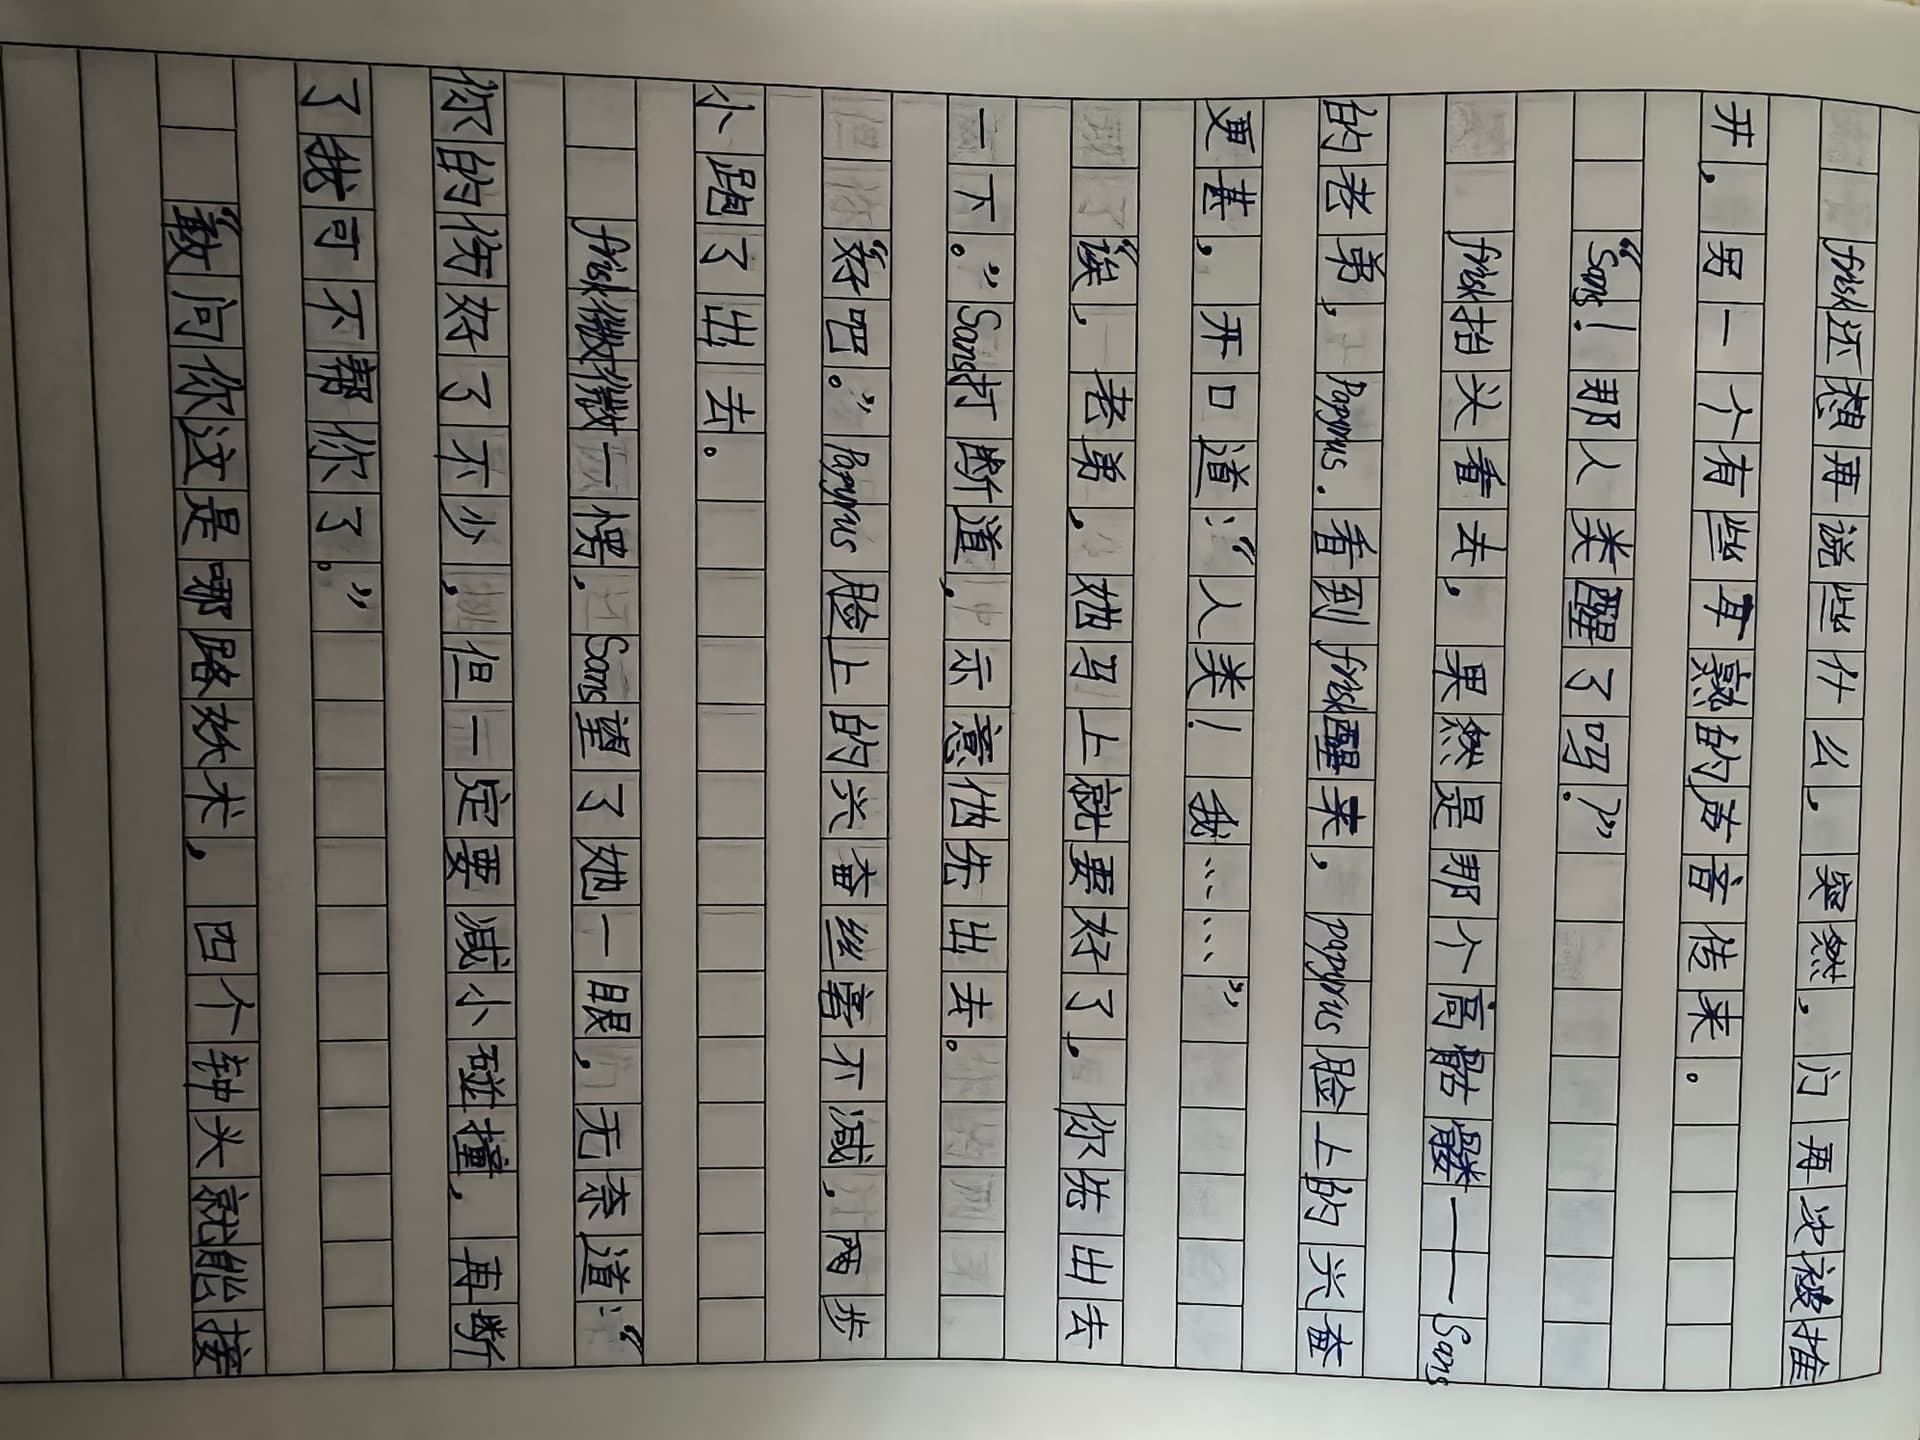 frisk还想再说些什么，突然，门再次被推
开，另一个有些耳熟的声音传来。
“Sans！那人类醒了吗？”
frisk抬头看去，果然是那个高骷髅——Sans
的老弟，Papyrus．看到frisk醒来，papyrus脸上的兴奋
更甚，开口道：“人类！我……”
“诶，老弟，她马上就要好了，你先出去
一下。”Sans打断道，示意他先出去。
“好吧。”Papyrus脸上的兴奋丝毫不减，两步
小跑了出去。
frisk微微一愣，Sans望了她一眼，无奈道：“
你的伤好了不少，但一定要减小碰撞，再断
了我可不帮你了。”
“敢问你这是哪路妖术，四个钟头就能接